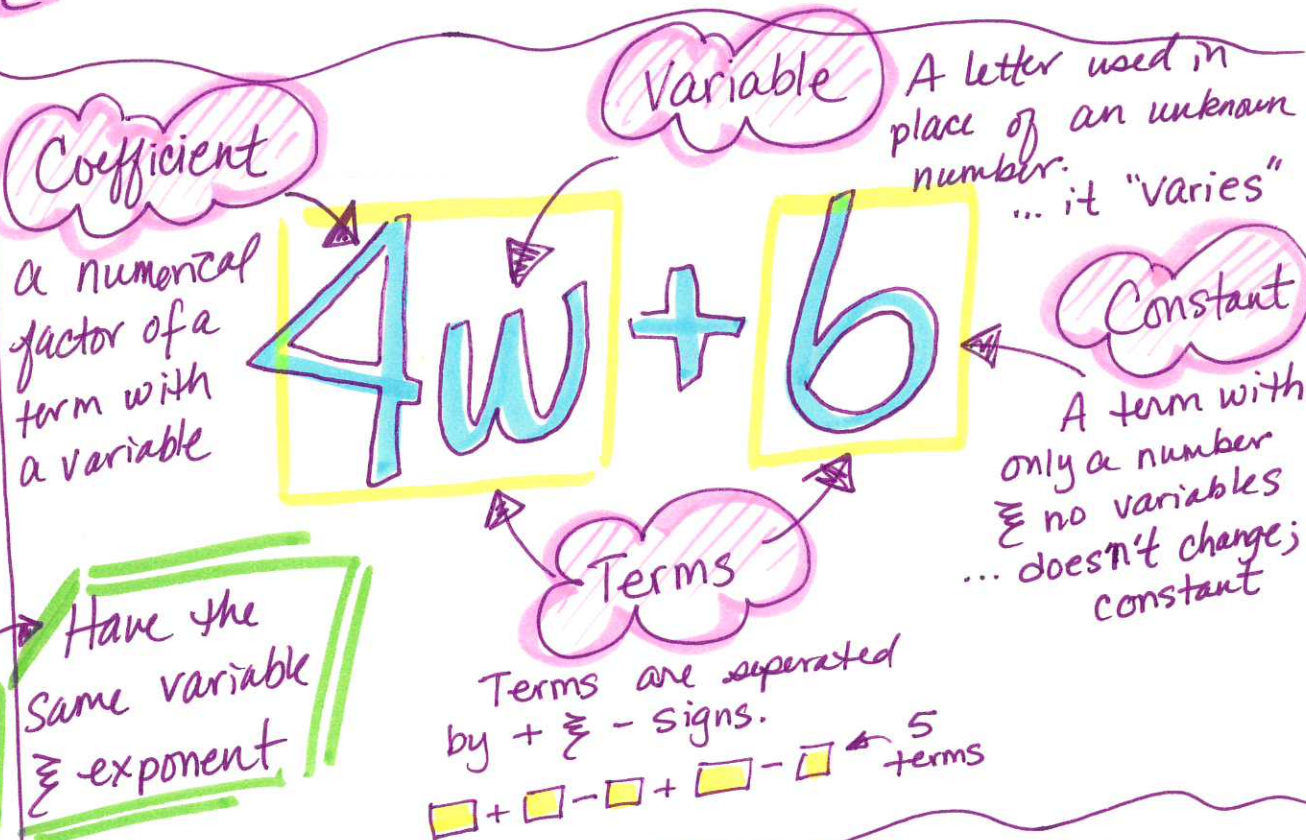 Coefficient
a numerical
factor of a
term with
a variable
Variable
A letter used in
place of an unknown
number.
... it "varies"
4w + 6
Constant
A term with
only a number
& no variables
... doesn't change;
constant
Terms
Terms are seperated
by + & - signs.
+ - + -
5
terms
Have the
same variable
& exponent